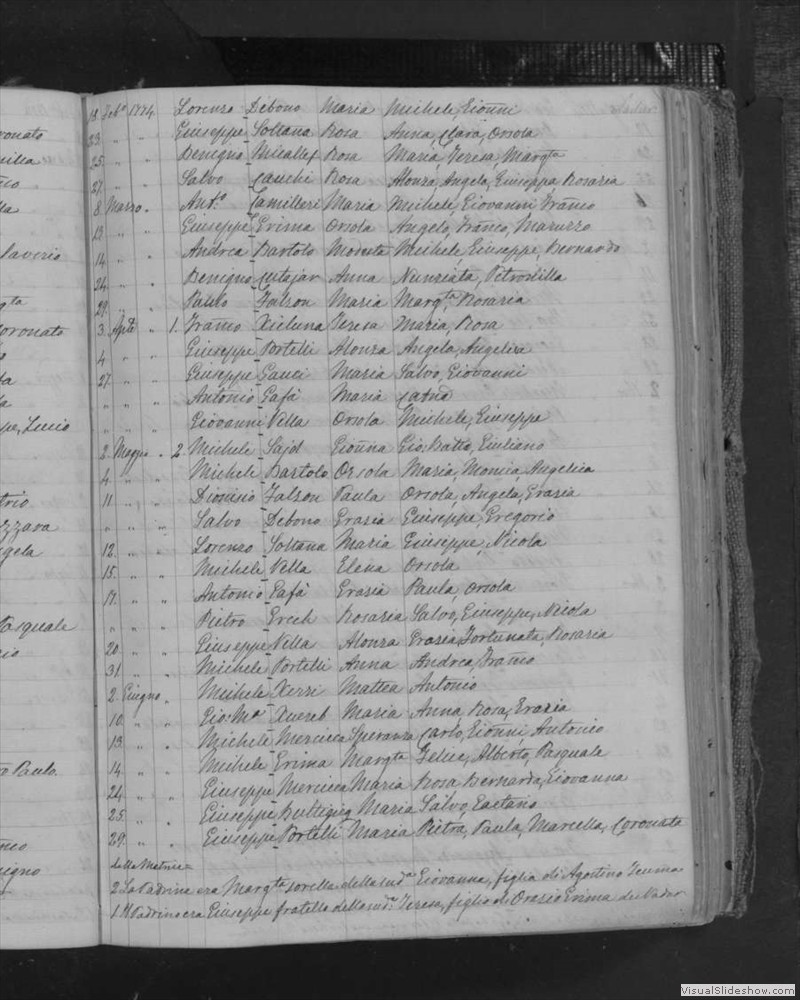 ronato
milia
Saverio
Coronato
Lucio
trio
zzava
ngela
Pasquale
cio
o Paulo
nco
nigno
18 Feb.o 1774 Lorenzo Debono Maria Michele, Gioñni
23 " " Giuseppe Soltana Rosa Anna, Clara, Orsola
25 " " Benigno Micallef Rosa Maria, Teresa, Margta
27 " " Salvo Cauchi Rosa Alonza, Angela, Giuseppa, Rosaria
8 Marzo " Ant.o Camilleri Maria Michele, Giovanni Franco
13 " " Giuseppe Grima Orsola Angelo, Franco, Maruzzo
14 " " Andrea Bartolo Moneta Michele Giuseppe, Bernardo
24 " " Benigno Cutajar Anna Nunziata, Petronilla
29 " " Paulo Falzon Maria Margta Rosaria
3 Aple " 1. Franco Xicluna Teresa Maria, Rosa
4 " " Giuseppe Portelli Alonza Angela, Angelica
27 " " Giuseppe Gauci Maria Salvo, Giovanni
" " " Antonio Cafà Maria
" " " Giovanni Vella Orsola Michele, Giuseppe
2 Maggio " 2. Michele Gioñna Gio. Batta, Giuliano
4 " " Michele Bartolo Orsola Maria, Monica, Angelica
11 " " Dionisio Falzon Paula Orsola, Angela, Grazia
" " " Salvo Debono Grazia Giuseppe, Gregorio
12 " " Lorenzo Soltana Maria Giuseppe, Nicola
15 " " Michele Vella Elena Orsola
17 " " Antonio Cafà Grazia Paula, Orsola
" " " Pietro Grech Rosaria Salvo, Giuseppe, Nicola
20 " " Giuseppe Vella Alonza Grazia, Fortunata, Rosaria
31 " " Michele Portelli Anna Andrea, Franco
2 Giugno " Michele Xerri Mattea Antonio
10 " " Gio: Ma Xuereb Maria Anna, Rosa, Grazia
13 " " Michele Mercieca Speranza Carlo, Gioñni Antonio
14 " " Michele Grima Margta Felice, Alberto, Pasquale
24 " " Giuseppe Mercieca Maria Rosa Bernarda, Giovanna
25 " " Giuseppe Buttigieg Maria Salvo, Gaetano
29 " " Giuseppe Portelli Maria Pietra, Paula, Marcella, Coronata
della Matrice
2 La Padrina era Margta sorella della sud.a Giovanna, figlia di Agostino
1 Il Padrino era Giuseppe fratello della sud.a Teresa, figlio di Orazio Grima del Nadur
VisualSlideshow.com